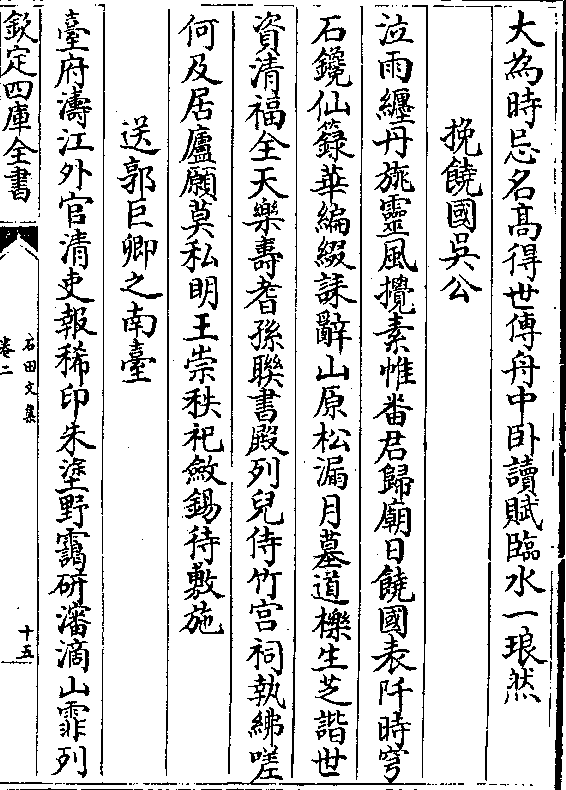 大為時忌名髙得世傳舟中卧讀賦臨水一琅然
挽饒國吳公
泣雨纒丹旐靈風攪素帷畨君歸廟日饒國表阡時穹
石鑱仙籙華編綴誄辭山原松漏月墓道櫟生芝諧世
資清福全天樂壽耆孫聯書殿列兒侍竹宫祠執紼嗟
何及居廬願莫私明王崇秩祀斂錫待敷施
送郭巨卿之南臺
臺府濤江外官清吏報稀印朱塗野靄硏瀋滴山霏列
欽定四庫全書
石田文集
卷二
十五